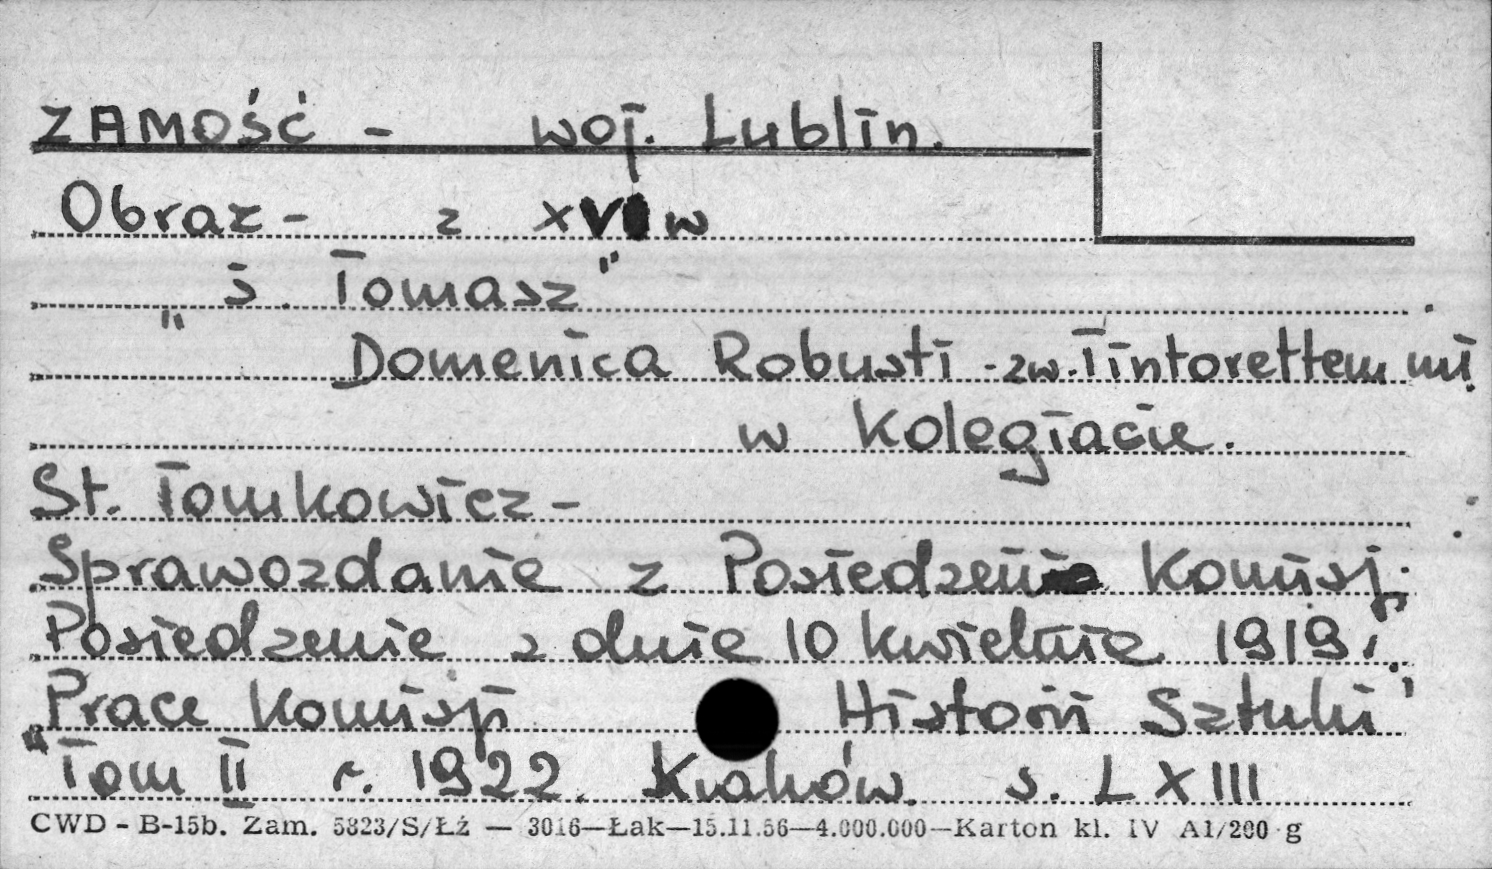 ZAMOŚĆ - woj. Lublin.
Obraz - z XVI w
„Ś. Tomasz”
Domenica Robusti - zw. Tintorettem mł.
w Kolegiacie.
St. Tomkowicz -
Sprawozdanie z Posiedzenia Komisj.
Posiedzenie z dnia 10 kwietnia 1919 r.
„Prace Komisji Historii Sztuki”
Tom II r. 1922. Kraków. s. LXIII
CWD - B-15b. Zam. 5823/S/Łź — 3016—Łak—15.11.56—4.000.000—Karton kl. IV A1/200 g